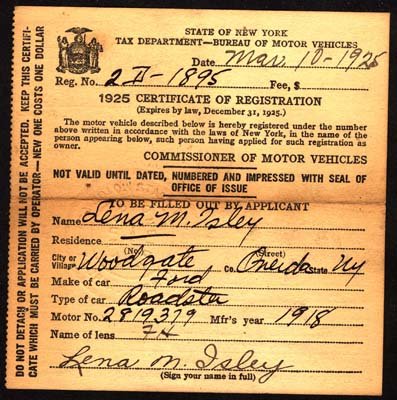 STATE OF NEW YORK
TAX DEPARTMENT—BUREAU OF MOTOR VEHICLES
Date Mar. 10-1925
Reg. No. 2 D-1895 Fee, $
1925 CERTIFICATE OF REGISTRATION
(Expires by law, December 31, 1925.)
The motor vehicle described below is hereby registered under the number
above written in accordance with the laws of New York, in the name of the
person appearing below, such person having applied for such registration as
owner.
COMMISSIONER OF MOTOR VEHICLES
NOT VALID UNTIL DATED, NUMBERED AND IMPRESSED WITH SEAL OF
OFFICE OF ISSUE
TO BE FILLED OUT BY APPLICANT
Name Lena M. Isley
Residence
(No.) (Street)
City or Village Woodgate Co. Oneida State NY
Make of car Ford
Type of car Roadster
Motor No. 2819379 Mfr's year 1918
Name of lens
Lena M. Isley
(Sign your name in full)
DO NOT DETACH OR APPLICATION WILL NOT BE ACCEPTED. KEEP THIS CERTIFI-
CATE WHICH MUST BE CARRIED BY OPERATOR—NEW ONE COSTS ONE DOLLAR